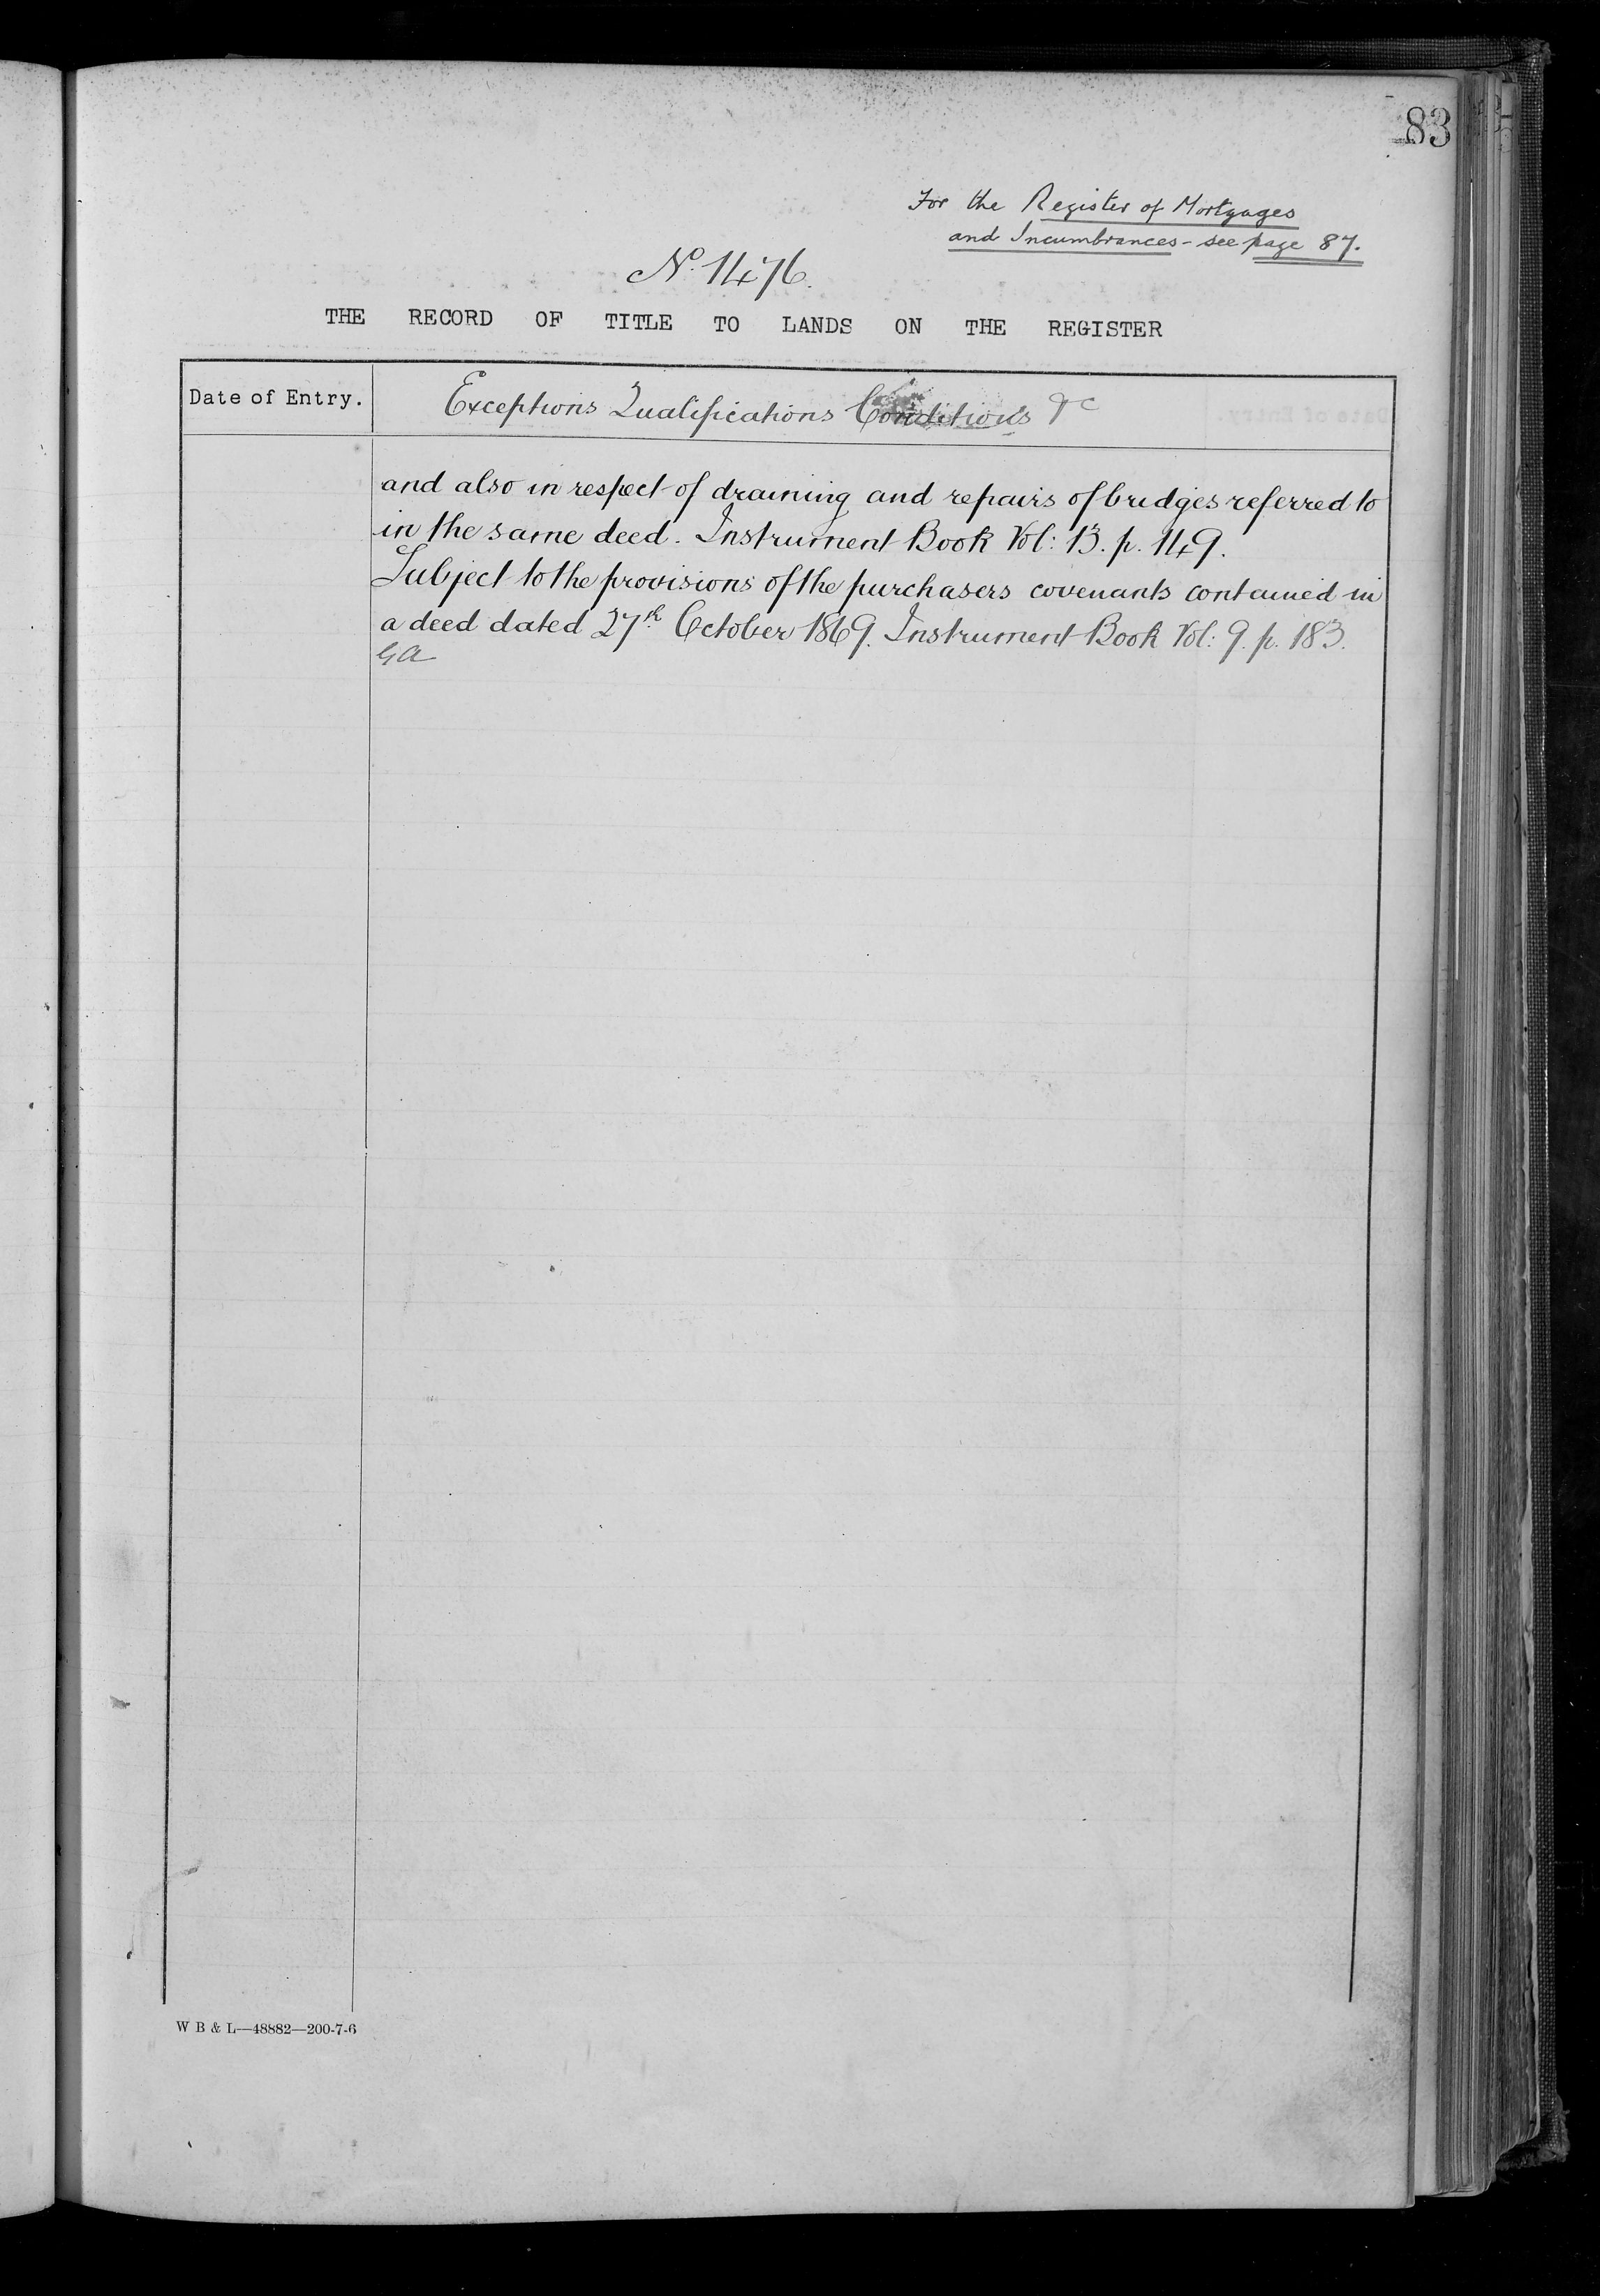 83
For the Register of Mortgages
and Incumbrances - see page 87.
No. 1476.
THE RECORD OF TITLE TO LANDS ON THE REGISTER
Date of Entry.
Exceptions Qualifications Conditions &c
and also in respect of draining and repairs of bridges referred to
in the same deed. Instrument Book Vol: 13. p. 149.
Subject to the provisions of the purchasers covenants contained in
a deed dated 27th October 1869. Instrument Book Vol: 9. p. 183.
GA
W B & L—48882—200-7-6